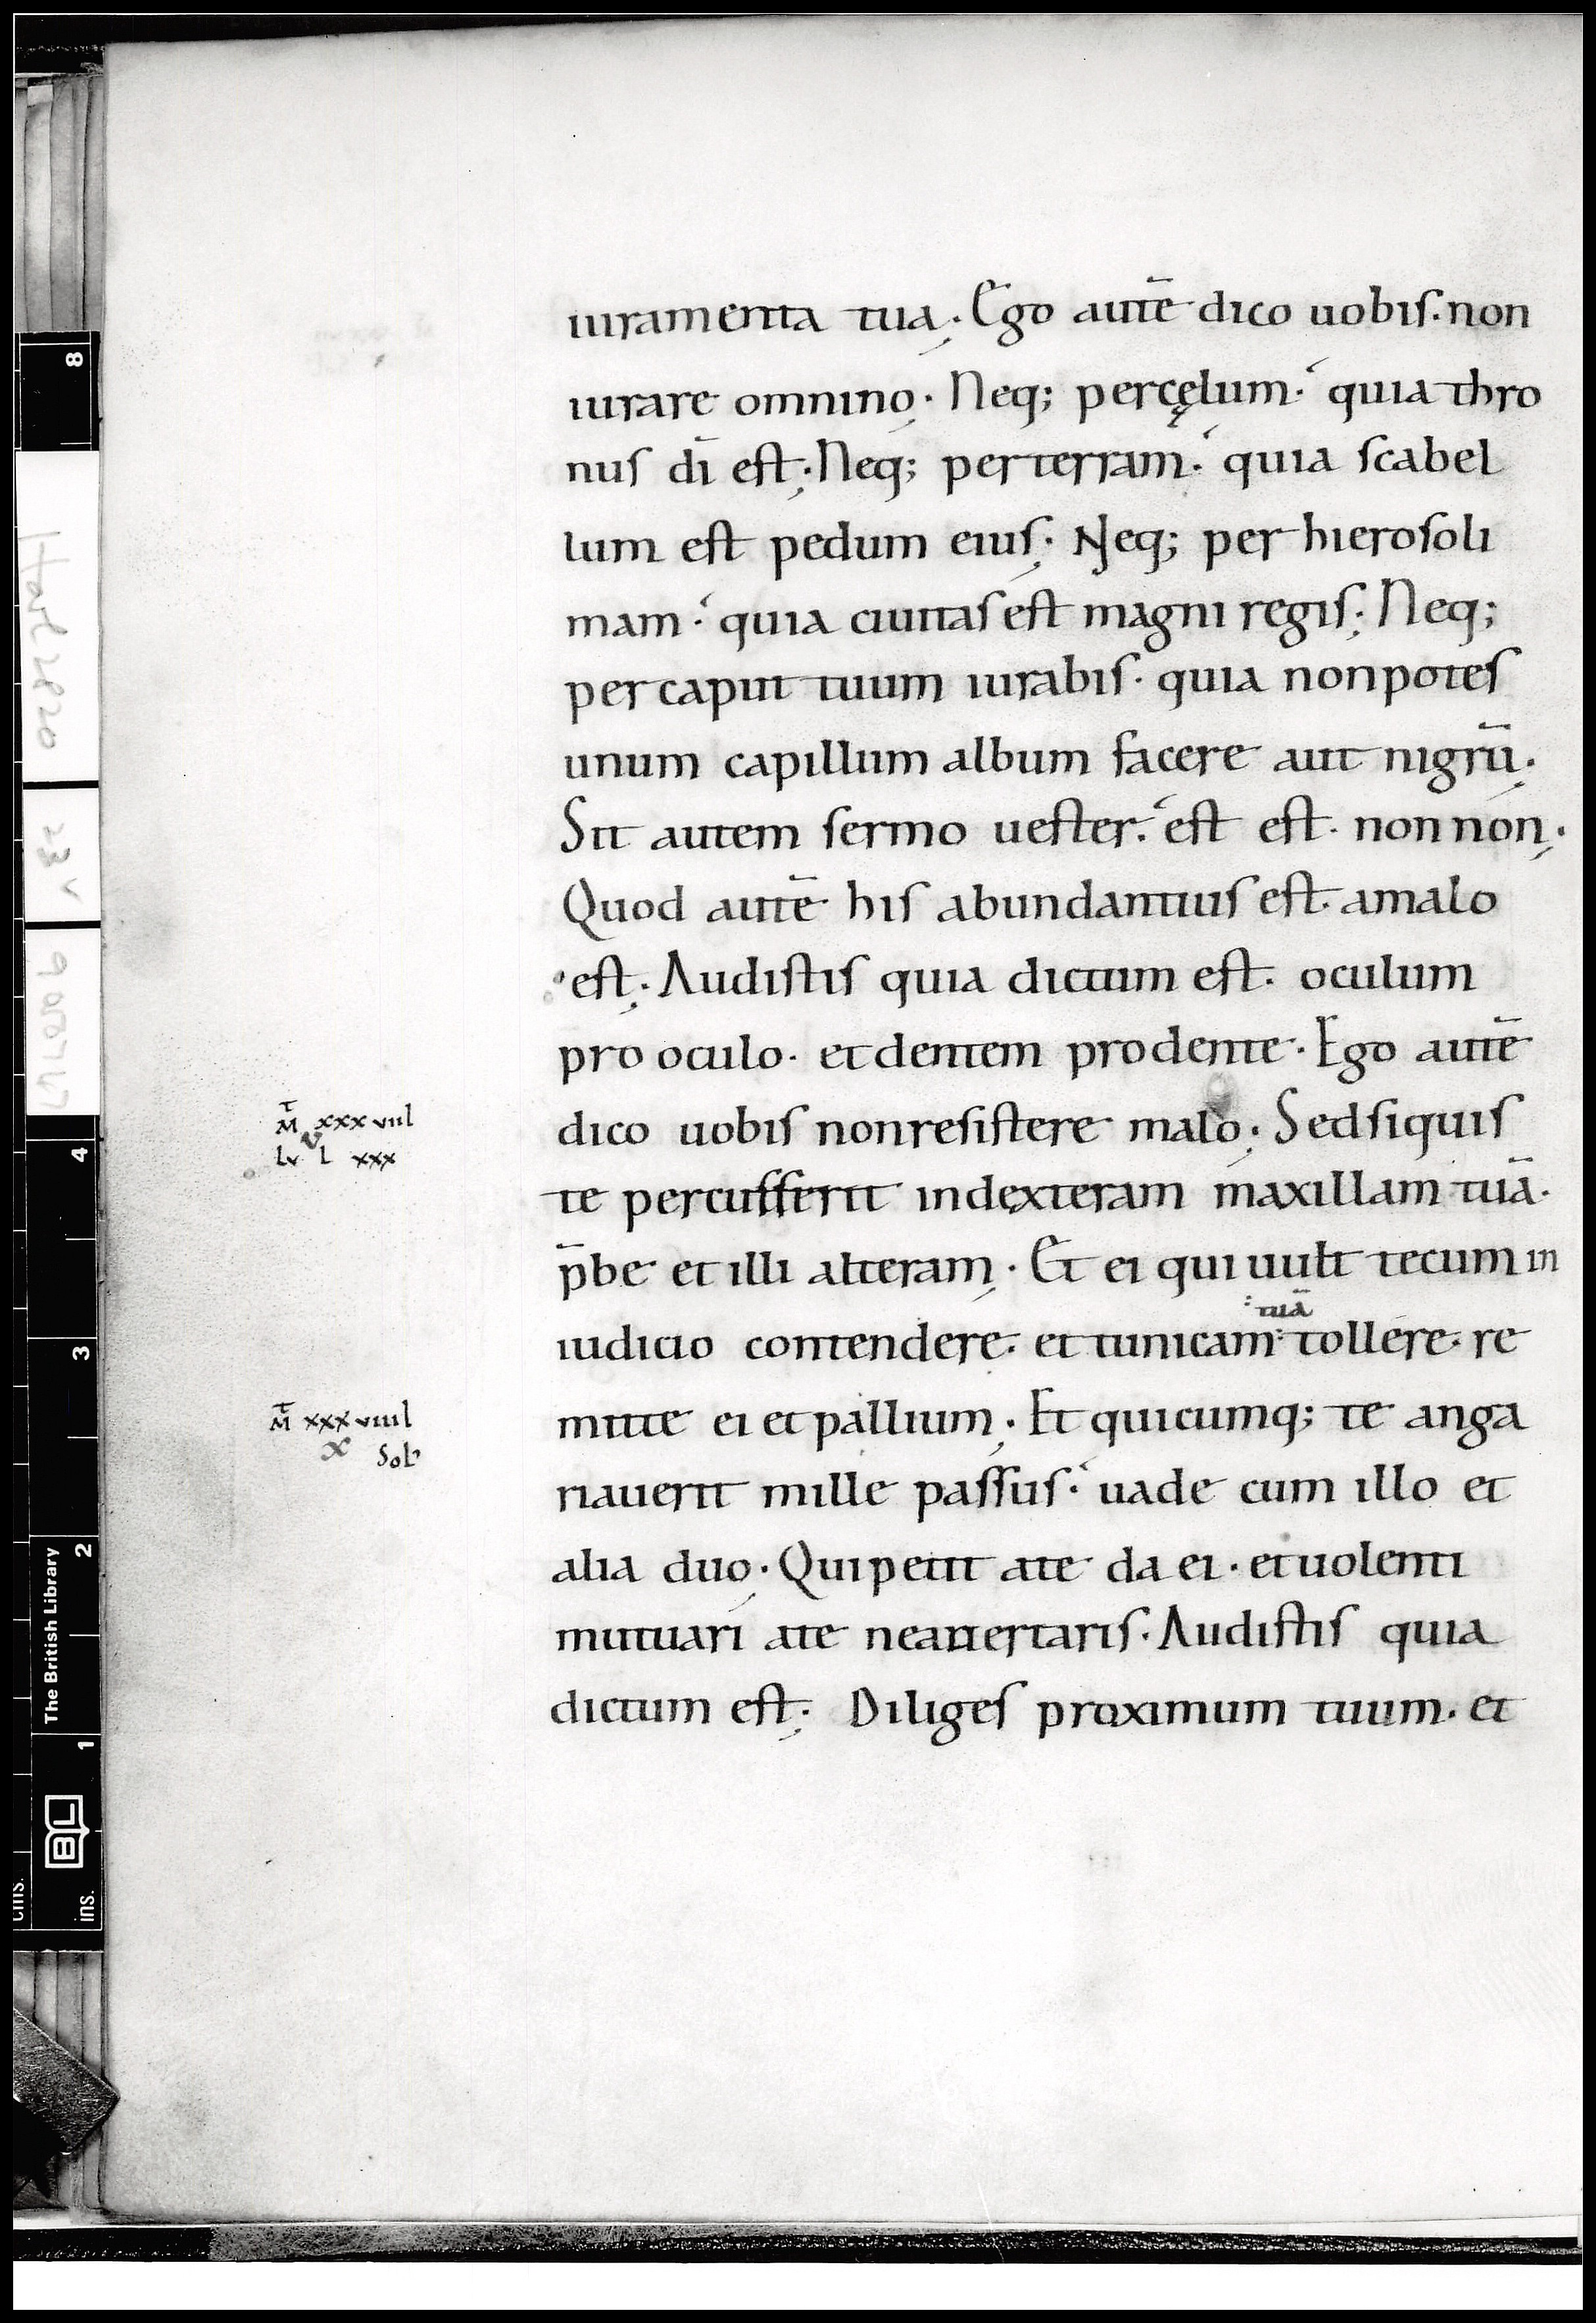 iuramenta tua. Ego autē dico uobis. non
iurare omnino. Neq; per cęlum. quia thro
nus dī est. Neq; per terram. quia scabel
lum est pedum eius. Neq; per hierosoli
mam. quia ciuitas est magni regis. Neq;
per caput tuum iurabis. quia non potes
unum capillum album facere aut nigrū.
Sit autem sermo uester. est est. non non.
Quod autē his abundantius est. a malo
est. Audistis quia dictum est. oculum
pro oculo. et dentem pro dente. Ego autē
dico uobis non resistere malo. Sed si quis
te percusserit in dexteram maxillam tuā.
p̄be et illi alteram. Et ei qui uult tecum in
tuā
iudicio contendere. et tunicam tollere. re
mitte ei et pallium. Et quicumq; te anga
riauerit mille passus. uade cum illo et
alia duo. Qui petit a te da ei. et uolenti
mutuari a te ne auertaris. Audistis quia
dictum est. Diliges proximum tuum. et
M̄ xxxviii l
v
Lv L xxx
M̄ xxxviiii l
x Sol'
Harl 2820
23 v
8
4
3
2
1
The British Library
BL
cms.
ins.